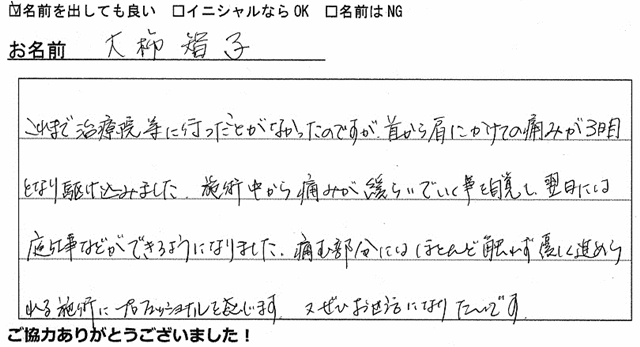 ☑名前を出しても良い □イニシャルならOK □名前はNG
お名前 大柳智子
これまで治療院等に行ったことがなかったのですが、首から肩にかけての痛みが3日目
となり駆け込みました。施術中から痛みが緩らいでいく事を自覚し、翌日には
庭仕事などができるようになりました。痛む部分にはほとんど触れず優しく進めら
れる施術にプロフェッショナルを感じます。又ぜひお世話になりたいです。
ご協力ありがとうございました！